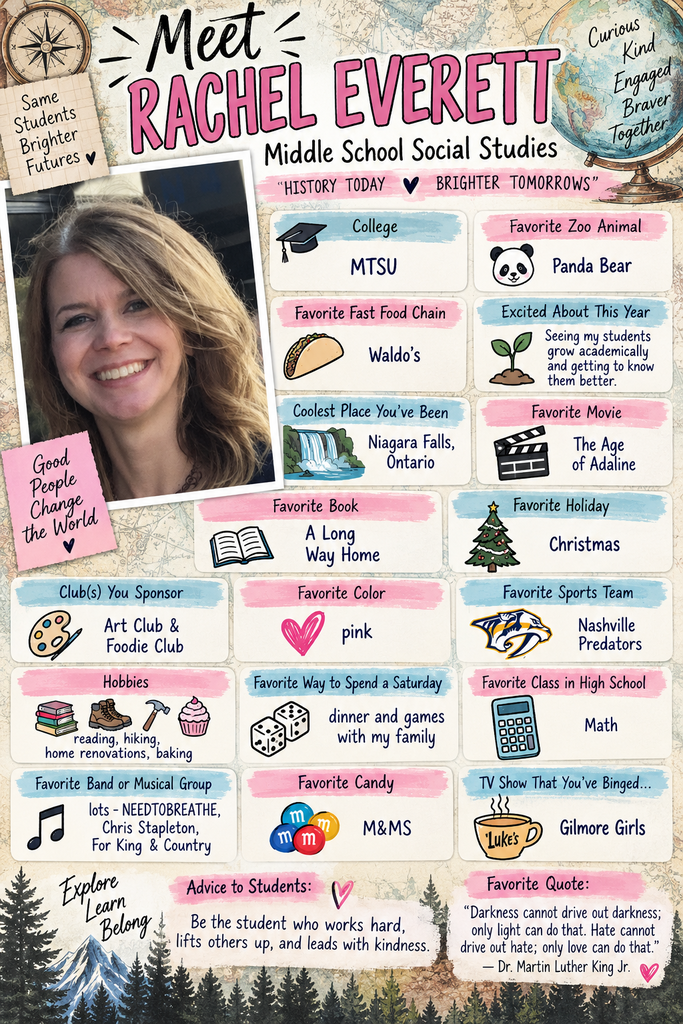 Meet
RACHEL EVERETT
Middle School Social Studies
"HISTORY TODAY ♥ BRIGHTER TOMORROWS"
Same
Students
Brighter
Futures ♥
Curious
Kind
Engaged
Braver
Together
College
MTSU
Favorite Zoo Animal
Panda Bear
Favorite Fast Food Chain
Waldo's
Excited About This Year
Seeing my students
grow academically
and getting to know
them better.
Coolest Place You've Been
Niagara Falls,
Ontario
Favorite Movie
The Age
of Adaline
Good
People
Change
the World
♥
Favorite Book
A Long
Way Home
Favorite Holiday
Christmas
Club(s) You Sponsor
Art Club &
Foodie Club
Favorite Color
pink
Favorite Sports Team
Nashville
Predators
Hobbies
reading, hiking,
home renovations, baking
Favorite Way to Spend a Saturday
dinner and games
with my family
Favorite Class in High School
Math
Favorite Band or Musical Group
lots - NEEDTOBREATHE,
Chris Stapleton,
For King & Country
Favorite Candy
m
m
m
m
M&MS
TV Show That You've Binged...
"Luke's
Gilmore Girls
Explore
Learn
Belong
Advice to Students:
Be the student who works hard,
lifts others up, and leads with kindness.
Favorite Quote:
"Darkness cannot drive out darkness;
only light can do that. Hate cannot
drive out hate; only love can do that."
— Dr. Martin Luther King Jr.